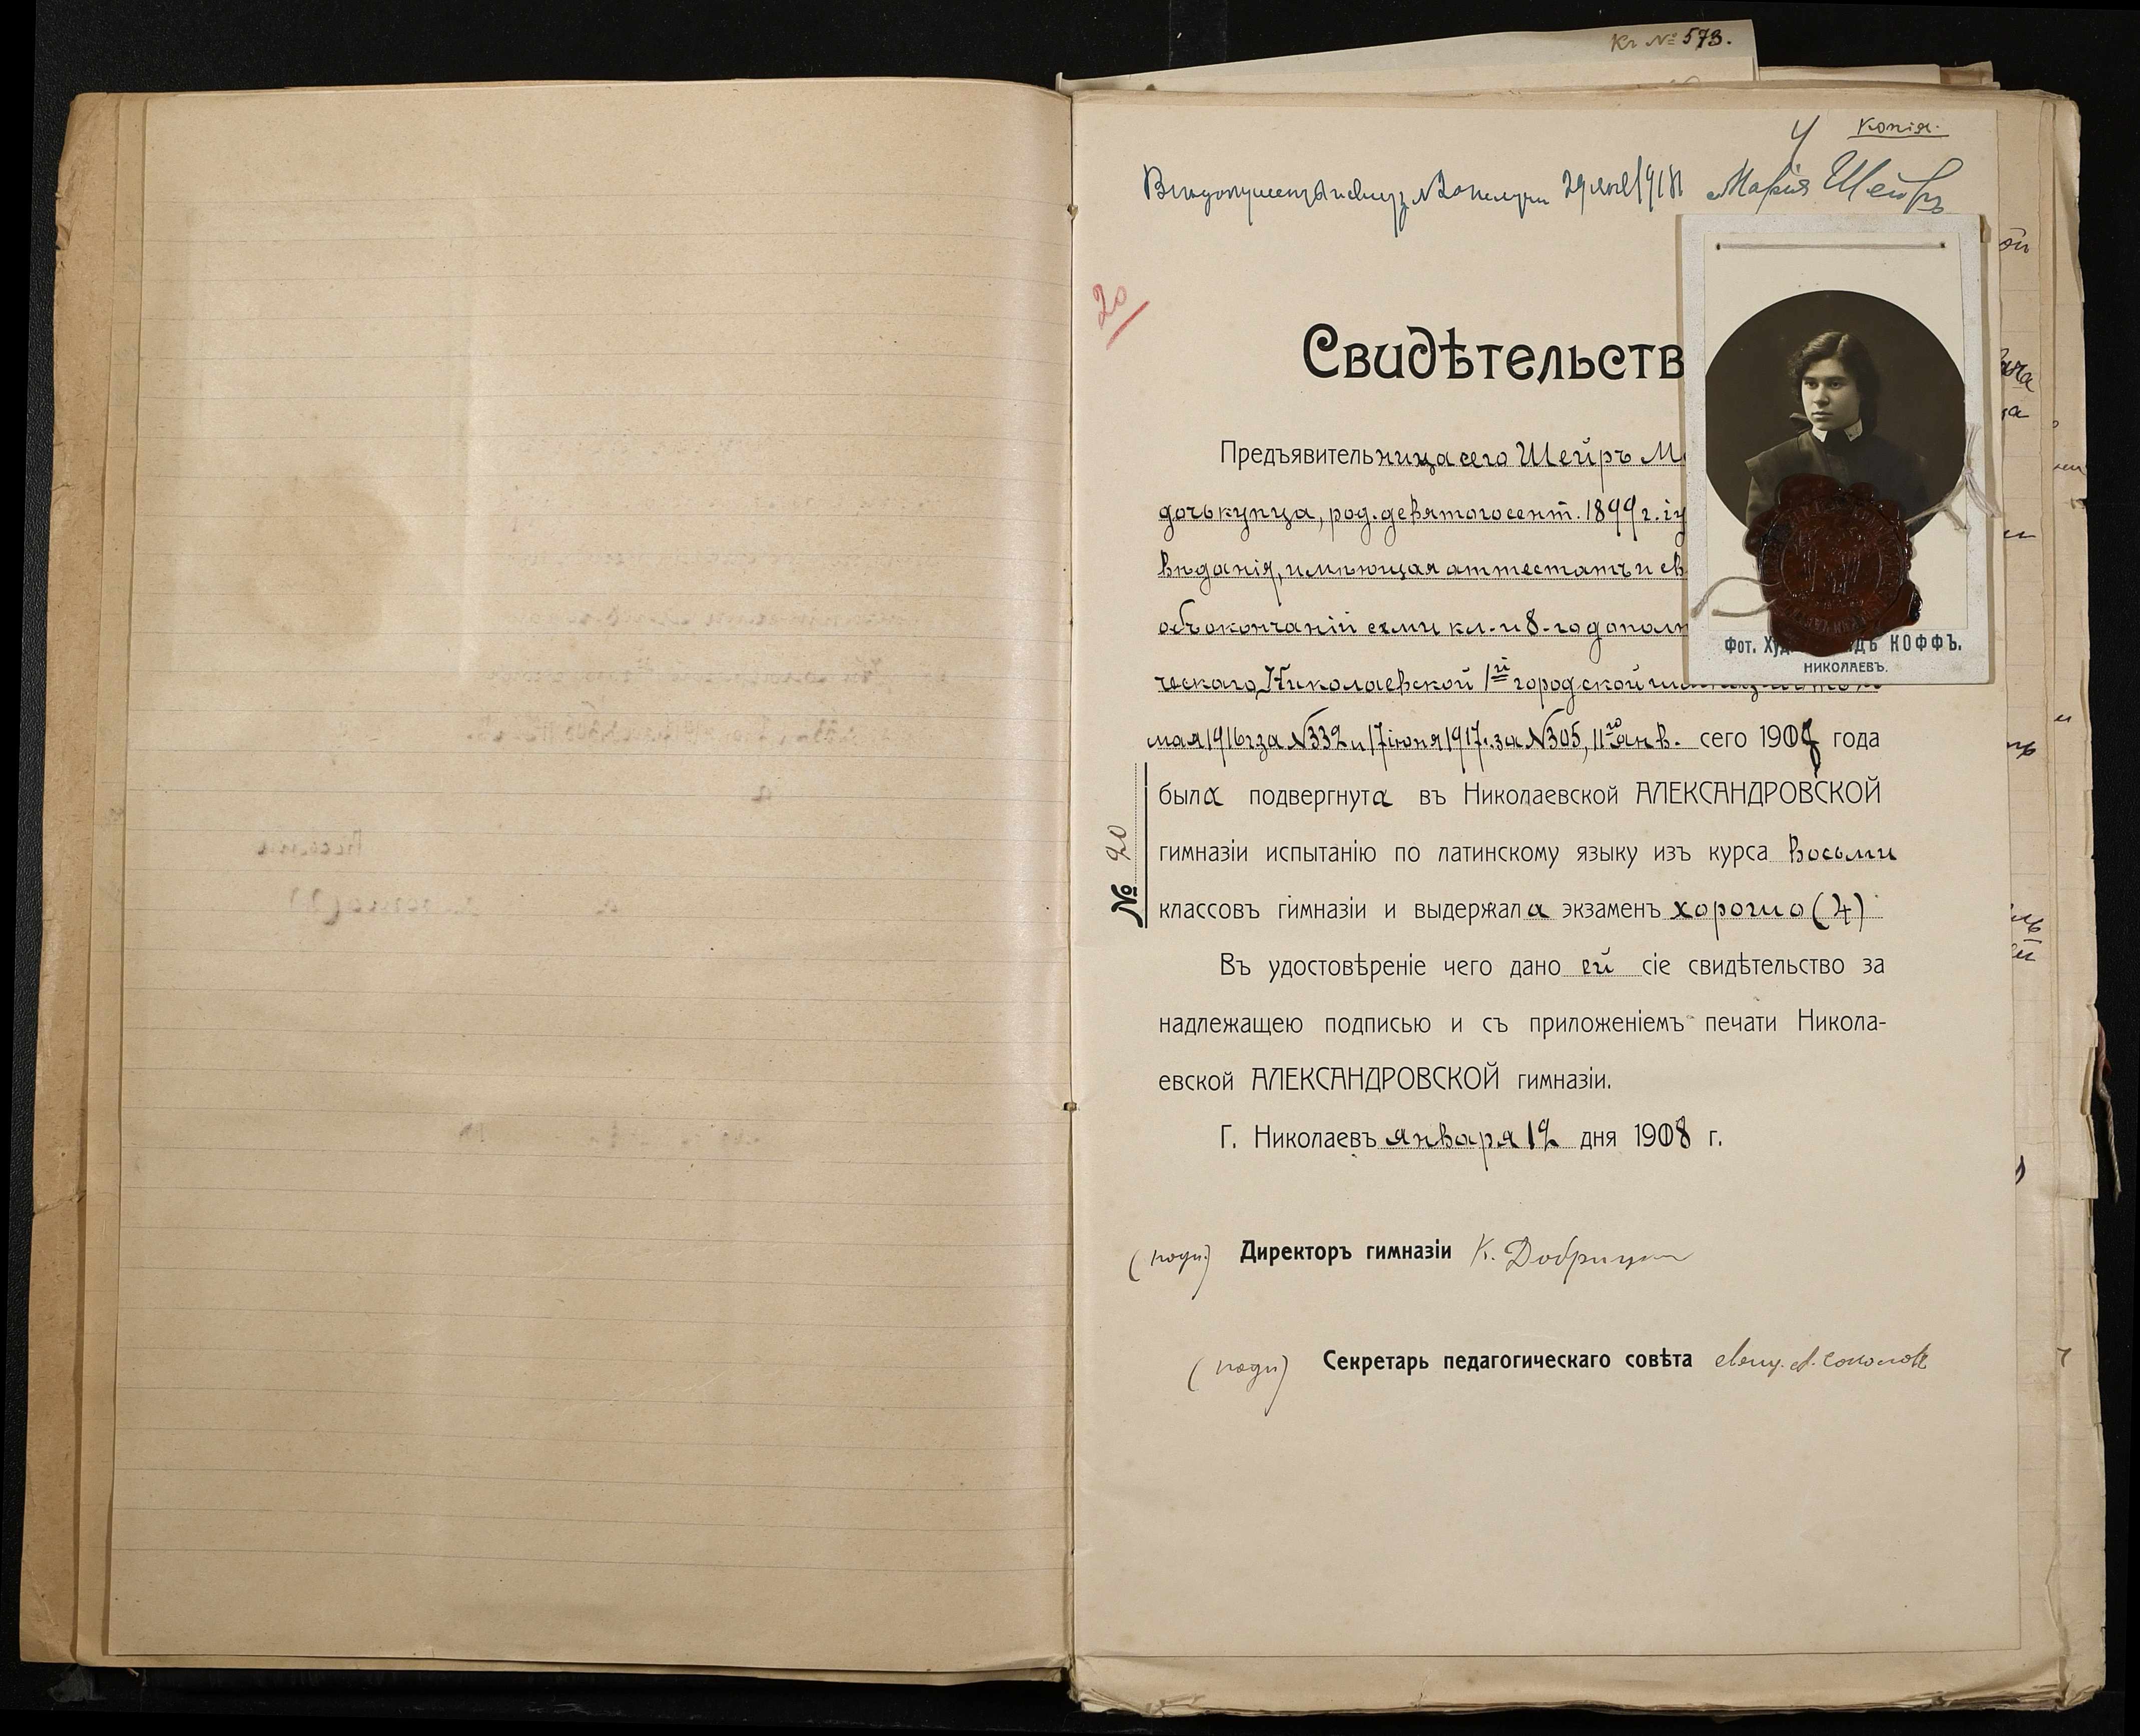 Кг № 573.
Копія.
29 янв 1918 Марія Шейръ
20
Свидѣтельств
Предъявительница сего Шейръ М
дочь купца, род. девятого сент. 1899 г. іу
вѣданія, имѣющая аттестатъ и св
объ окончаніи семи кл. и 8-го дополн
ческаго Николаевской 1ой городской
мая 1916 г за №332 и 17 іюня 1917 г. за №305, 11го янв. сего 1908 года
была подвергнута въ Николаевской АЛЕКСАНДРОВСКОЙ
гимназіи испытанію по латинскому языку изъ курса восьми
классовъ гимназіи и выдержала экзаменъ хорошо (4)
Въ удостовѣреніе чего дано ей сіе свидѣтельство за
надлежащею подписью и съ приложеніемъ печати Никола-
евской АЛЕКСАНДРОВСКОЙ гимназіи.
Г. Николаевъ января 12 дня 1908 г.
№ 20
(подп.) Директоръ гимназіи К. Добрицкій
(подп) Секретарь педагогическаго совѣта
Фот. Худ КОФФЪ.
НИКОЛАЕВЪ.